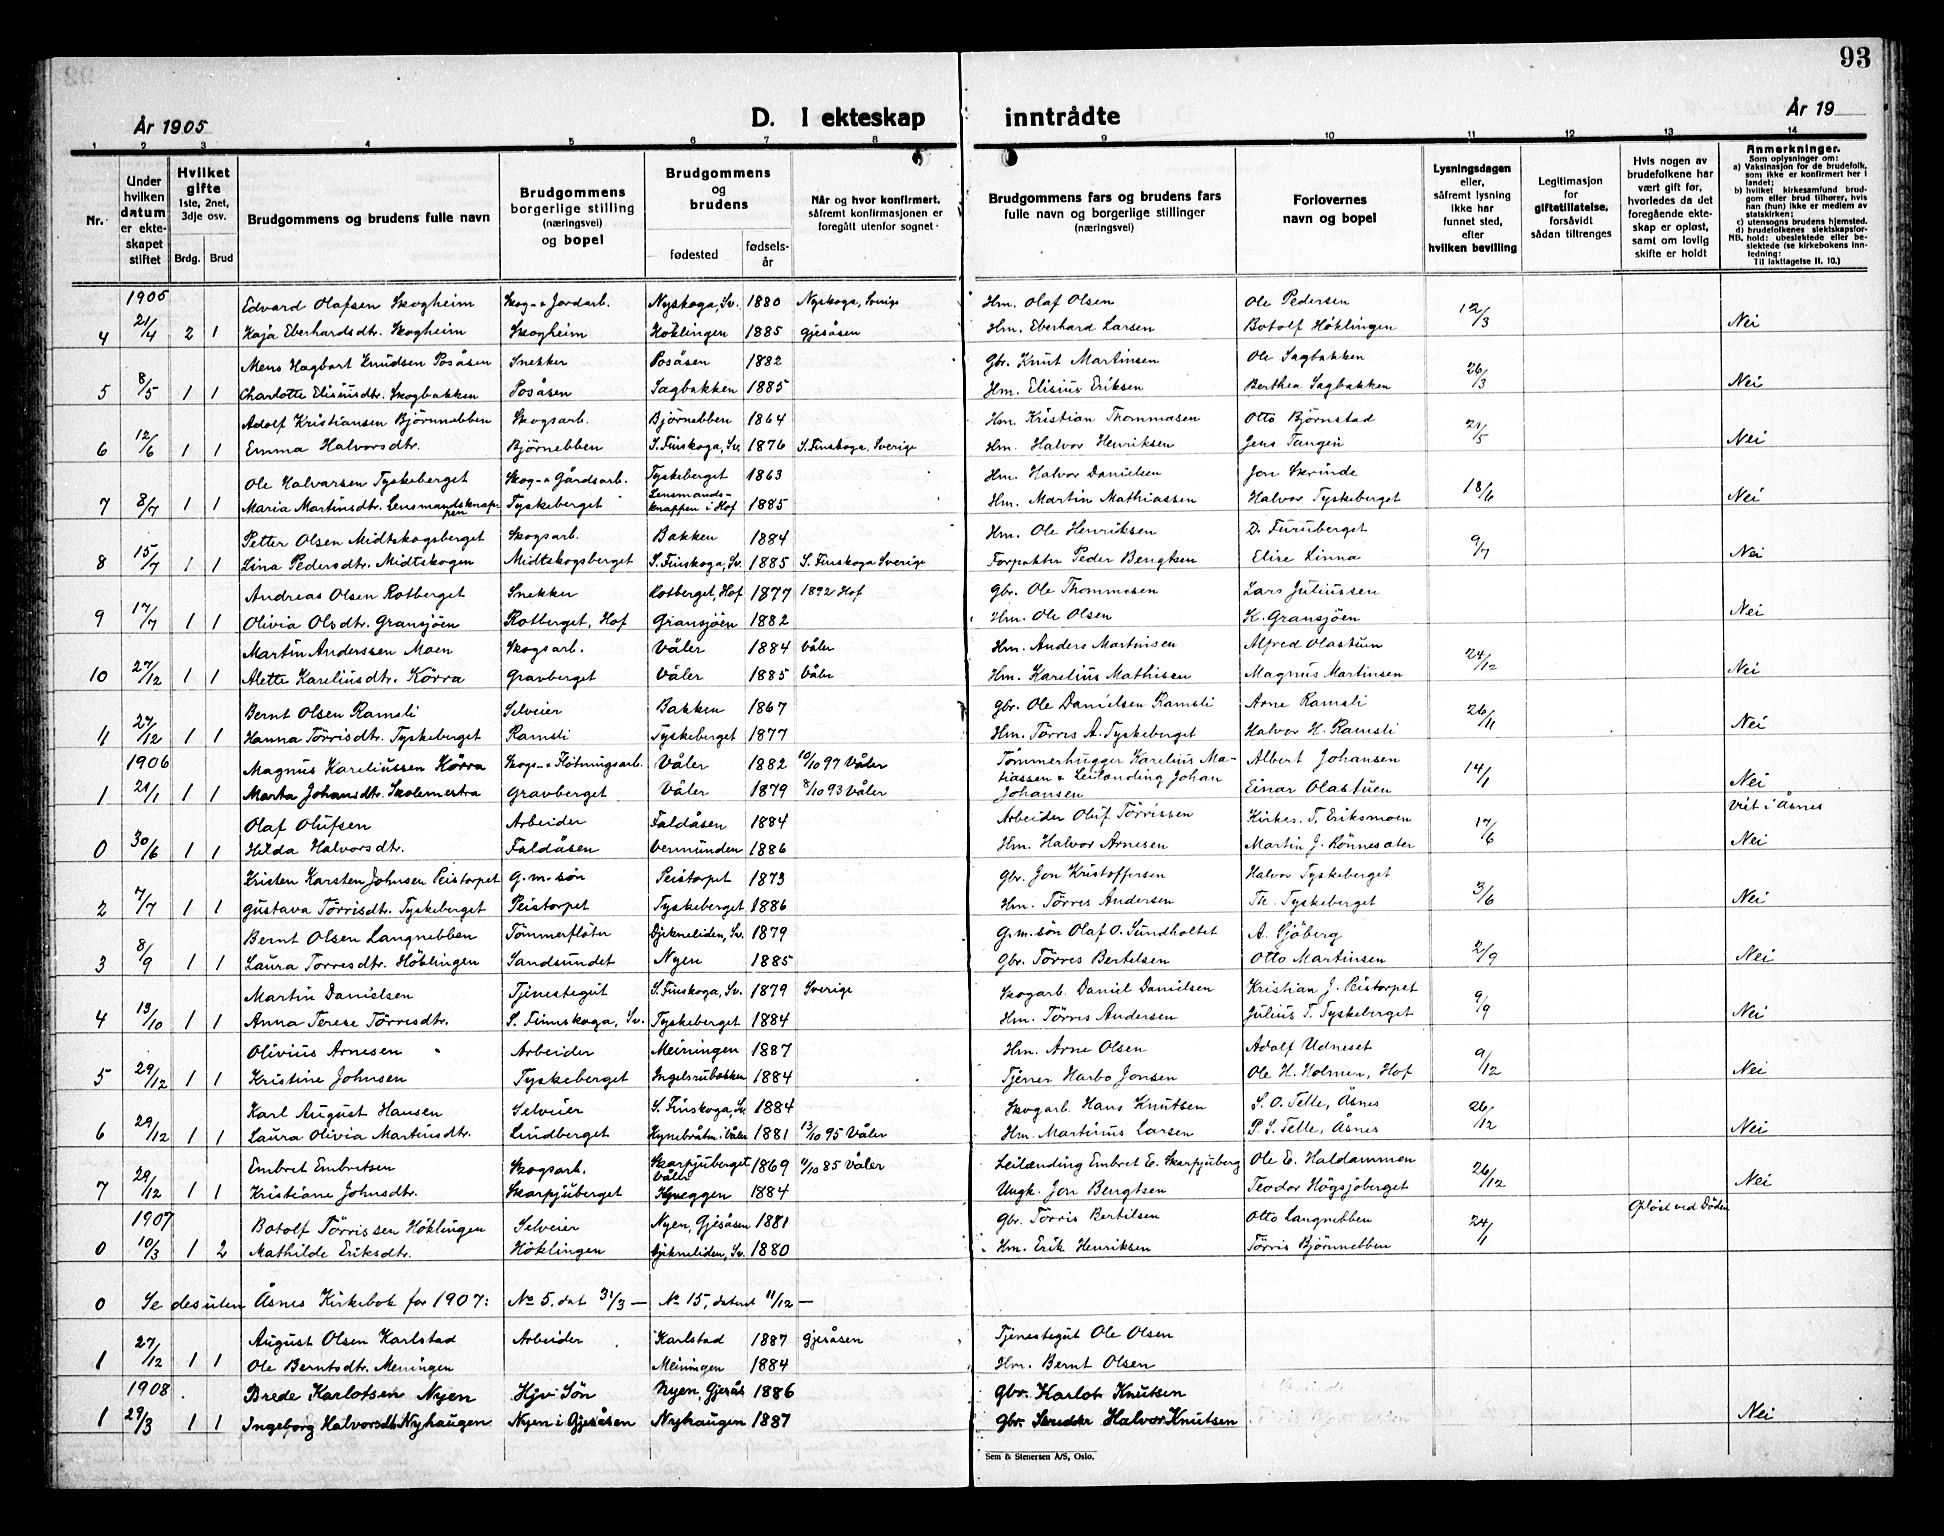 93
År 1905
D. I ekteskap inntrådte
År 19
1 2 3 4 5 6 7 8 9 10 11 12 13 14
Nr.
Under hvilken datum er ekteskapet stiftet
Hvilket gifte 1ste, 2net, 3dje osv.
Brdg. Brud
Brudgommens og brudens fulle navn
Brudgommens borgerlige stilling (næringsvei) og bopel
Brudgommens og brudens
fødested
fødselsår
Når og hvor konfirmert, såfremt konfirmasjonen er foregått utenfor sognet
Brudgommens fars og brudens fars fulle navn og borgerlige stillinger (næringsvei)
Forlovernes navn og bopel
Lysningsdagen eller, såfremt lysning ikke har funnet sted, efter hvilken bevilling
Legitimasjon for giftetillatelse, forsåvidt sådan tiltrenges
Hvis nogen av brudefolkene har vært gift før, hvorledes da det foregående ekteskap er opløst, samt om lovlig skifte er holdt
Anmerkninger.
Som oplysninger om:
a) Vaksinasjon for de brudefolk, som ikke er konfirmert her i landet;
b) hvilket kirkesamfund brudgom eller brud tilhører, hvis han (hun) ikke er medlem av statskirken;
c) utensogns brudens hjemsted.
d) brudefolkenes slektskapsforhold: ubeslektede eller beslektede (se kirkebokens innledning:
NB. Til iakttagelse II. 10.)
1905 Edvard Olafsen Skogheim Skog- & Jordarb. Nyskoga, Sv. 1880 Nyskoga, Sverige Hm. Olaf Olsen Ole Pedersen 12/3
4 21/4 2 1 Kaja Eberhardsdtr. Skogheim Skogheim Höklingen 1885 Gjesåsen Hm. Eberhard Larsen Botolf Höklingen Nei
Mens Hagbart Knudsen Posåsen Snekker Posåsen 1882 Gbr. Knut Martinsen Ole Sagbakken 26/3
5 8/5 1 1 Charlotte Elisiusdtr. Skogbakken Posåsen Sagbakken 1885 Hm. Elisius Eriksen Berthea Sagbakken Nei
Adolf Kristiansen Björnnebben Skogsarb. Björnebben 1864 Hm. Kristian Thommasen Otto Björnstad 21/5
6 12/6 1 1 Emma Halvorsdtr. Björnebben S. Finskoga, Sv. 1876 S. Finskoga, Sverige Hm. Halvor Henriksen Jens Tangen Nei
Ole Halvarsen Tyskeberget Skog- & Gårdsarb. Tyskeberget 1863 Hm. Halvor Danielsen Jon Skrinde 18/6
7 8/7 1 1 Maria Martinsdtr. Lensmandsknappen Tyskeberget Lensmandsknappen i Hof 1885 Hm. Martin Mathiassen Halvor Tyskeberget Nei
Petter Olsen Midtskogsberget Skogsarb. Bakken 1884 Hm. Ole Henriksen D. Furuberget 9/7
8 15/7 1 1 Lina Pedersdtr. Midtskogen Midtskogsberget S. Finskoga, Sv. 1885 S. Finskoga Sverige Forpakter Peder Bengtsen Elise Linna Nei
Andreas Olsen Rotberget Snekker Rotberget, Hof 1877 1892 Hof Gbr. Ole Thommesen Lars Juliussen
9 17/7 1 1 Olivia Olsdtr. Gransjöen Rotberget, Hof Gransjöen 1882 Hm. Ole Olsen K. Gransjöen Nei
Martin Anderssen Moen Skogsarb. Våler 1884 Våler Hm. Anders Martinsen Alfred Olastuen 24/12
10 27/12 1 1 Alette Kareliusdtr. Körra Gravberget Våler 1885 Våler Hm. Karelius Mathisen Magnus Martinsen Nei
Bernt Olsen Ramsli Selveier Bakken 1867 Gbr. Ole Danielsen Ramsli Arne Ramsli 26/11
11 27/12 1 1 Hanna Törrisdtr. Tyskeberget Ramsli Tyskeberget 1877 Hm. Törris A. Tyskeberget Halvor H. Ramsli Nei
1906 Magnus Kareliussen Körra Skogs- & Flötningsarb. Våler 1882 10/10 97 Våler Tømmerhugger Karelius Matiassen & Leilending Johan Johansen Albert Johansen 14/1
1 21/1 1 1 Marta Johansdtr. Skolemestra Gravberget Våler 1879 8/10 93 Våler Einar Olastuen Nei
Olaf Olufsen Arbeider Faldåsen 1884 Arbeider Oluf Törrissen Kirkes. T. Eriksmoen 17/6 Viet i Åsnes
0 30/6 1 1 Hilda Halvorsdtr. Faldåsen Vermunden 1886 Hm. Halvor Arnesen Martin J. Rönnesæter Nei
Kristen Karsten Johnsen Peistorpet G.m.sön Peistorpet 1873 Gbr. Jon Kristoffersen Halvor Tyskeberget 3/6
2 7/7 1 1 Gustava Törrisdtr. Tyskeberget Peistorpet Tyskeberget 1886 Hm. Törres Andersen Th. Tyskeberget Nei
Bernt Olsen Langnebben Tömmerflöter Djekneliden, Sv. 1879 G.m.sön Olaf O. Sundholtet A. Sjöberg 2/9
3 8/9 1 1 Laura Torresdtr. Höklingen Sandsundet Nyen 1885 Gbr. Törres Bertelsen Otto Martinsen Nei
Martin Danielsen Tjenestegut S. Finskoga, Sv. 1879 Sverige Skogarb. Daniel Danielsen Kristian J. Peistorpet 9/9
4 13/10 1 1 Anna Terese Törresdtr. S. Finnskoga, Sv. Tyskeberget 1884 Hm. Törres Andersen Julius T. Tyskeberget Nei
Olivius Arnesen Arbeider Meiningen 1887 Hm. Arne Olsen Adolf Udneset 9/12
5 29/12 1 1 Kristine Johnsen Tyskeberget Ingelsrubakken 1884 Tjener Harbo Jonsen Ole H. Holmen, Hof Nei
Karl August Hansen Selveier S. Finskoga, Sv. 1884 Skogarb. Hans Knutsen S. O. Telle, Åsnes 26/12
6 29/12 1 1 Laura Olivia Martinsdtr. Lindberget Kynebråtn. i Våler 1881 13/10 95 Våler Hm. Martinus Larsen P. S. Telle, Åsnes Nei
Embret Embretsen Skogsarb. Skarpjuberget Våler 1869 4/10 85 Våler Leilænding Embret E. Skarpjuberg Ole E. Haldammen 26/12
7 29/12 1 1 Kristiane Johnsdtr. Skarpjuberget Kjneggen 1884 Ungk. Jon Bengtsen Teodor Högsjöberget Nei
1907 Botolf Törrissen Höklingen Selveier Nyen, Gjesåsen 1881 Gbr. Törris Bertilsen Otto Langnebben 24/1 Opløst ved Döden
0 10/3 1 2 Mathilde Eriksdtr. Höklingen Djekneliden, Sv. 1880 Hm. Erik Henriksen Törris Björnnebben
0 Se desuten Åsnes Kirkebok for 1907: No 5, dat 31/3 — No 15, dateret 11/12 —
August Olsen Karlstad Arbeider Karlstad 1887 Gjesåsen Tjenestegut Ole Olsen
1 27/12 1 1 Ole Berntsdtr. Meningen Meiningen 1884 Hm. Bernt Olsen
1908 Brede Karlotsen Nyen Hjv. Sön Nyen, Gjesås 1886 Gbr. Karlot Knutsen
1 29/3 1 1 Ingeborg Halvorsdtr. Nyhaugen Nyen i Gjesåsen Nyhaugen 1887 Gbr. Halvor Knutsen Nei
Sem & Stenersen A/S, Oslo.